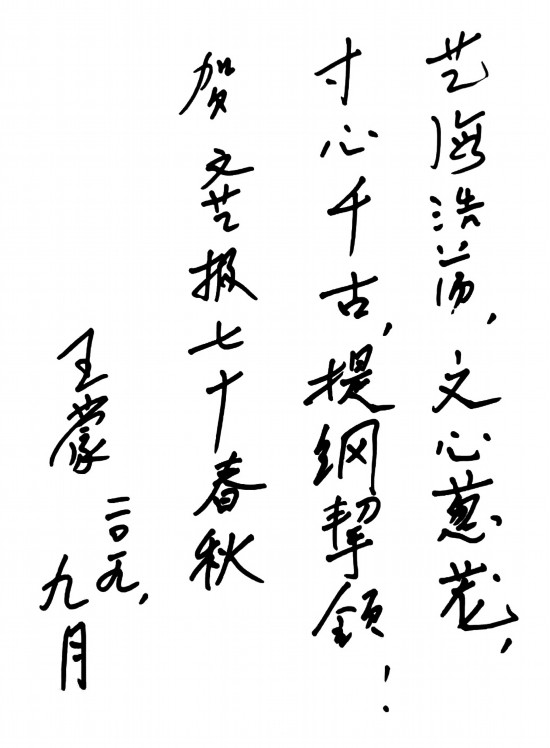 艺海浩荡，文心葱茏，
寸心千古，提纲挈领！
贺文艺报七十春秋
王蒙
二〇一九，
九月